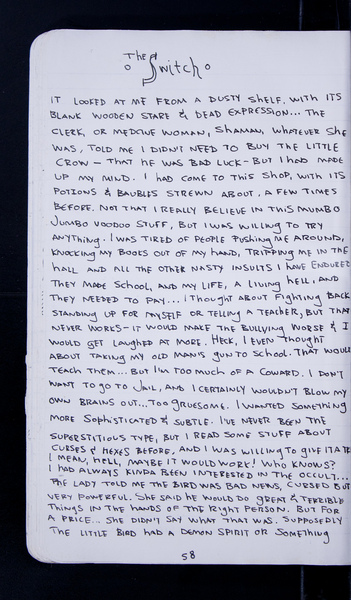 The Switch
IT LOOKED AT ME FROM A DUSTY SHELF, WITH ITS
BLANK WOODEN STARE & DEAD EXPRESSION... THE
CLERK, OR MEDICINE WOMAN, SHAMAN, WHATEVER SHE
WAS, TOLD ME I DIDN'T NEED TO BUY THE LITTLE
CROW — THAT HE WAS BAD LUCK - BUT I HAD MADE
UP MY MIND. I HAD COME TO THIS SHOP, WITH ITS
POTIONS & BAUBLES STREWN ABOUT, A FEW TIMES
BEFORE. NOT THAT I REALLY BELIEVE IN THIS MUMBO
JUMBO VOODOO STUFF, BUT I WAS WILLING TO TRY
ANYTHING. I WAS TIRED OF PEOPLE PUSHING ME AROUND,
KNOCKING MY BOOKS OUT OF MY HAND, TRIPPING ME IN THE
HALL AND ALL THE OTHER NASTY INSULTS I HAVE ENDURED
THEY MADE SCHOOL, AND MY LIFE, A LIVING HELL, AND
THEY NEEDED TO PAY... I THOUGHT ABOUT FIGHTING BACK
STANDING UP FOR MYSELF OR TELLING A TEACHER, BUT THAT
NEVER WORKS - IT WOULD MAKE THE BULLYING WORSE & I
WOULD GET LAUGHED AT MORE. HECK, I EVEN THOUGHT
ABOUT TAKING MY OLD MAN'S GUN TO SCHOOL. THAT WOULD
TEACH THEM... BUT I'M TOO MUCH OF A COWARD. I DON'T
WANT TO GO TO JAIL, AND I CERTAINLY WOULDN'T BLOW MY
OWN BRAINS OUT... TOO GRUESOME. I WANTED SOMETHING
MORE SOPHISTICATED & SUBTLE. I'VE NEVER BEEN THE
SUPERSTITIOUS TYPE, BUT I READ SOME STUFF ABOUT
CURSES & HEXES BEFORE, AND I WAS WILLING TO GIVE IT A
I MEAN, HELL, MAYBE IT WOULD WORK! WHO KNOWS?
I HAD ALWAYS KINDA BEEN INTERESTED IN THE OCCULT...
THE LADY TOLD ME THE BIRD WAS BAD NEWS, CURSED BUT
VERY POWERFUL. SHE SAID HE WOULD DO GREAT & TERRIBLE
THINGS IN THE HANDS OF THE RIGHT PERSON. BUT FOR
A PRICE... SHE DIDN'T SAY WHAT THAT WAS. SUPPOSEDLY
THE LITTLE BIRD HAD A DEMON SPIRIT OR SOMETHING
58